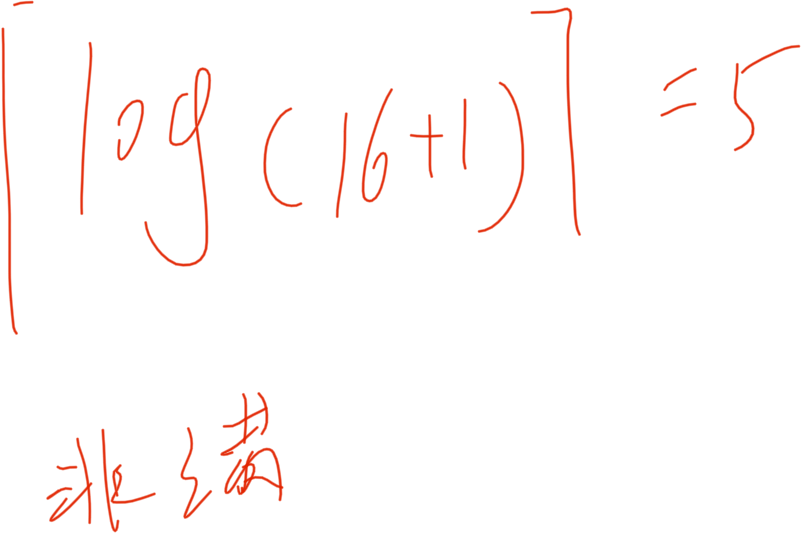 ⌈log(16+1)⌉ =5
非满